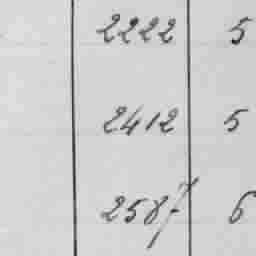 2222 5
2412 5
2587 6